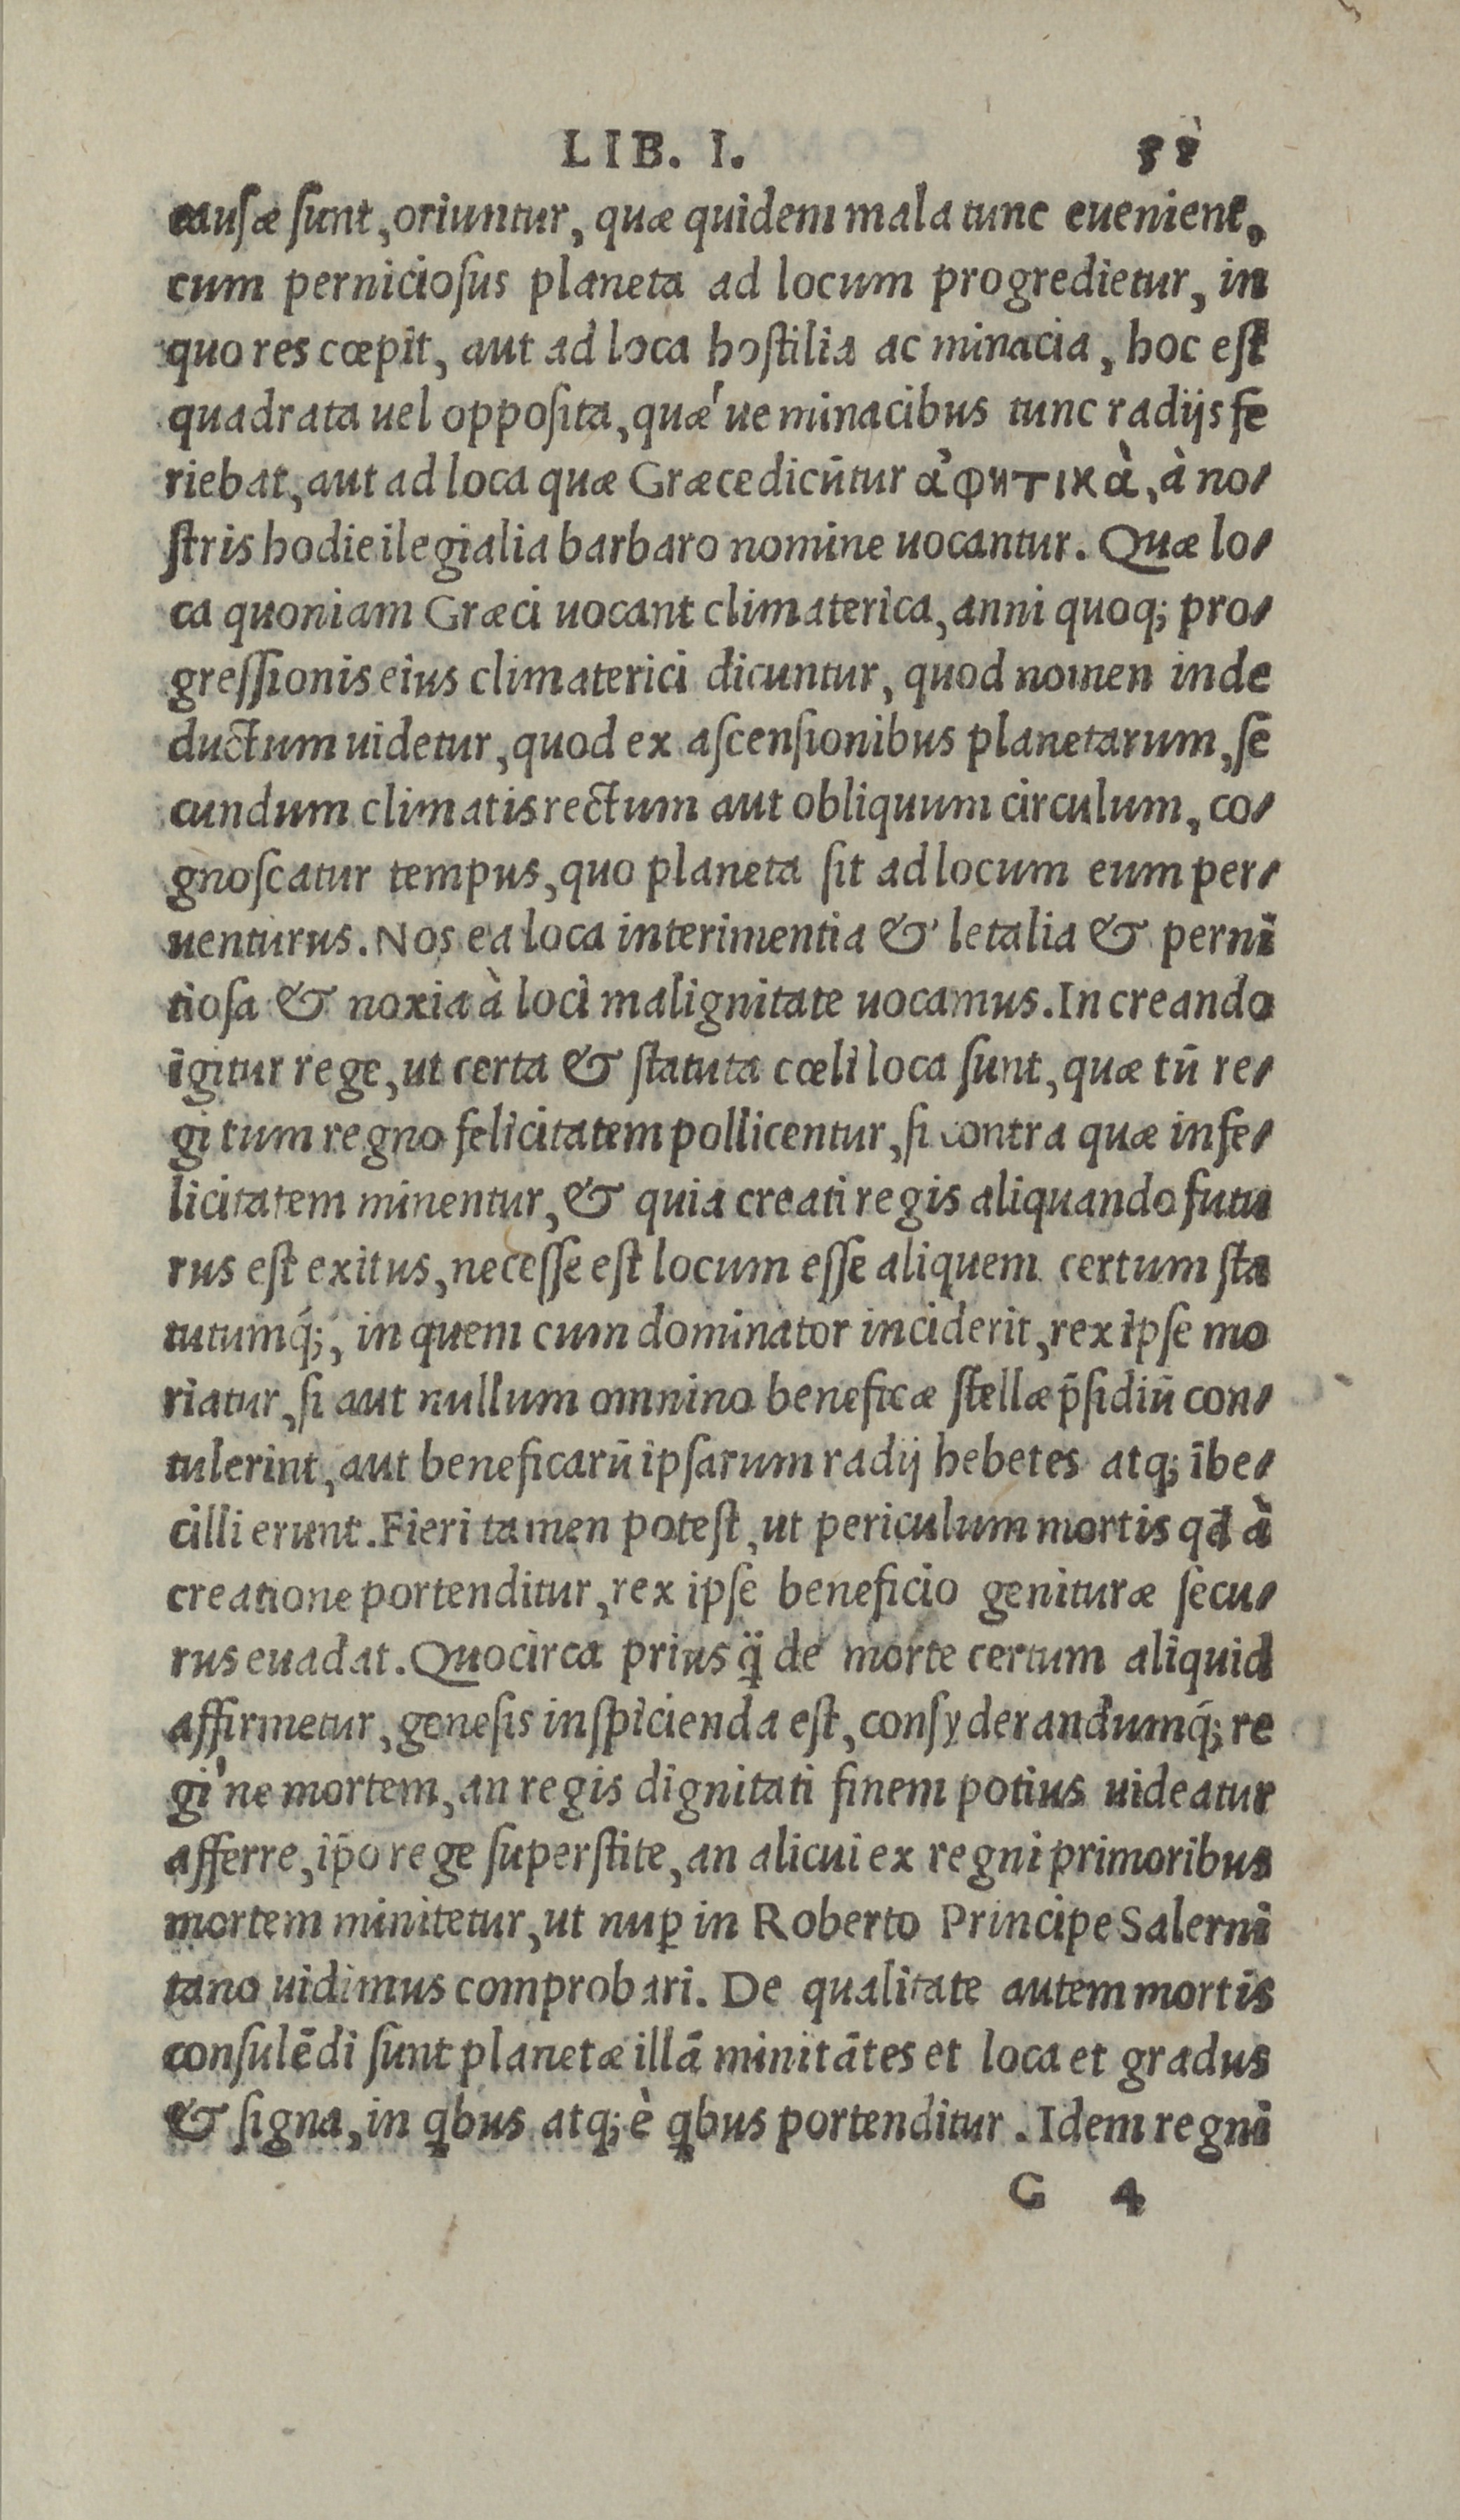 LIB. I.
causæ sunt, oriuntur, quæ quidem mala tunc euenient,
cum perniciosus planeta ad locum progredietur, in
quo res cœpit, aut ad loca hostilia ac minacia, hoc est
quadrata uel opposita, quæ'ue minacibus tunc radijs fe
riebat, aut ad loca quæ Græce dicūtur ἀφητικὰ, à no-
stris hodie ilegialia barbaro nomine uocantur. Quæ lo-
ca quoniam Græci uocant climaterica, anni quoq; pro-
gressionis eius climaterici dicuntur, quod nomen inde
ductum uidetur, quod ex ascensionibus planetarum, se
cundum climatis rectum aut obliquum circulum, co-
gnoscatur tempus, quo planeta sit ad locum eum per-
uenturus. Nos ea loca interimentia & letalia & perni
tiosa & noxia à loci malignitate uocamus. In creando
igitur rege, ut certa & statuta cœli loca sunt, quæ tū re-
gi tum regno felicitatem pollicentur, si contra quæ infe-
licitatem minentur, & quia creati regis aliquando futu
rus est exitus, necesse est locum esse aliquem certum sta
tutumq́;, in quem cum dominator inciderit, rex ipse mo
riatur, si aut nullum omnino beneficæ stellæ p̄sidiū con-
tulerint, aut beneficarū ipsarum radij hebetes atq; ībe-
cilli erunt. Fieri tamen potest, ut periculum mortis qd à
creatione portenditur, rex ipse beneficio genituræ secu-
rus euadat. Quocirca prius q̈ de morte certum aliquid
affirmetur, genesis inspicienda est, consyderandumq́; re
gi'ne mortem, an regis dignitati finem potius uideatur
afferre, ip̄o rege superstite, an alicui ex regni primoribus
mortem minitetur, ut nuꝑ in Roberto Principe Salerni
tano uidimus comprobari. De qualitate autem mortis
consulēdi sunt planetæ illā minitātes et loca et gradus
& signa, in qbus atq; è qbus portenditur. Idem regni
G 4